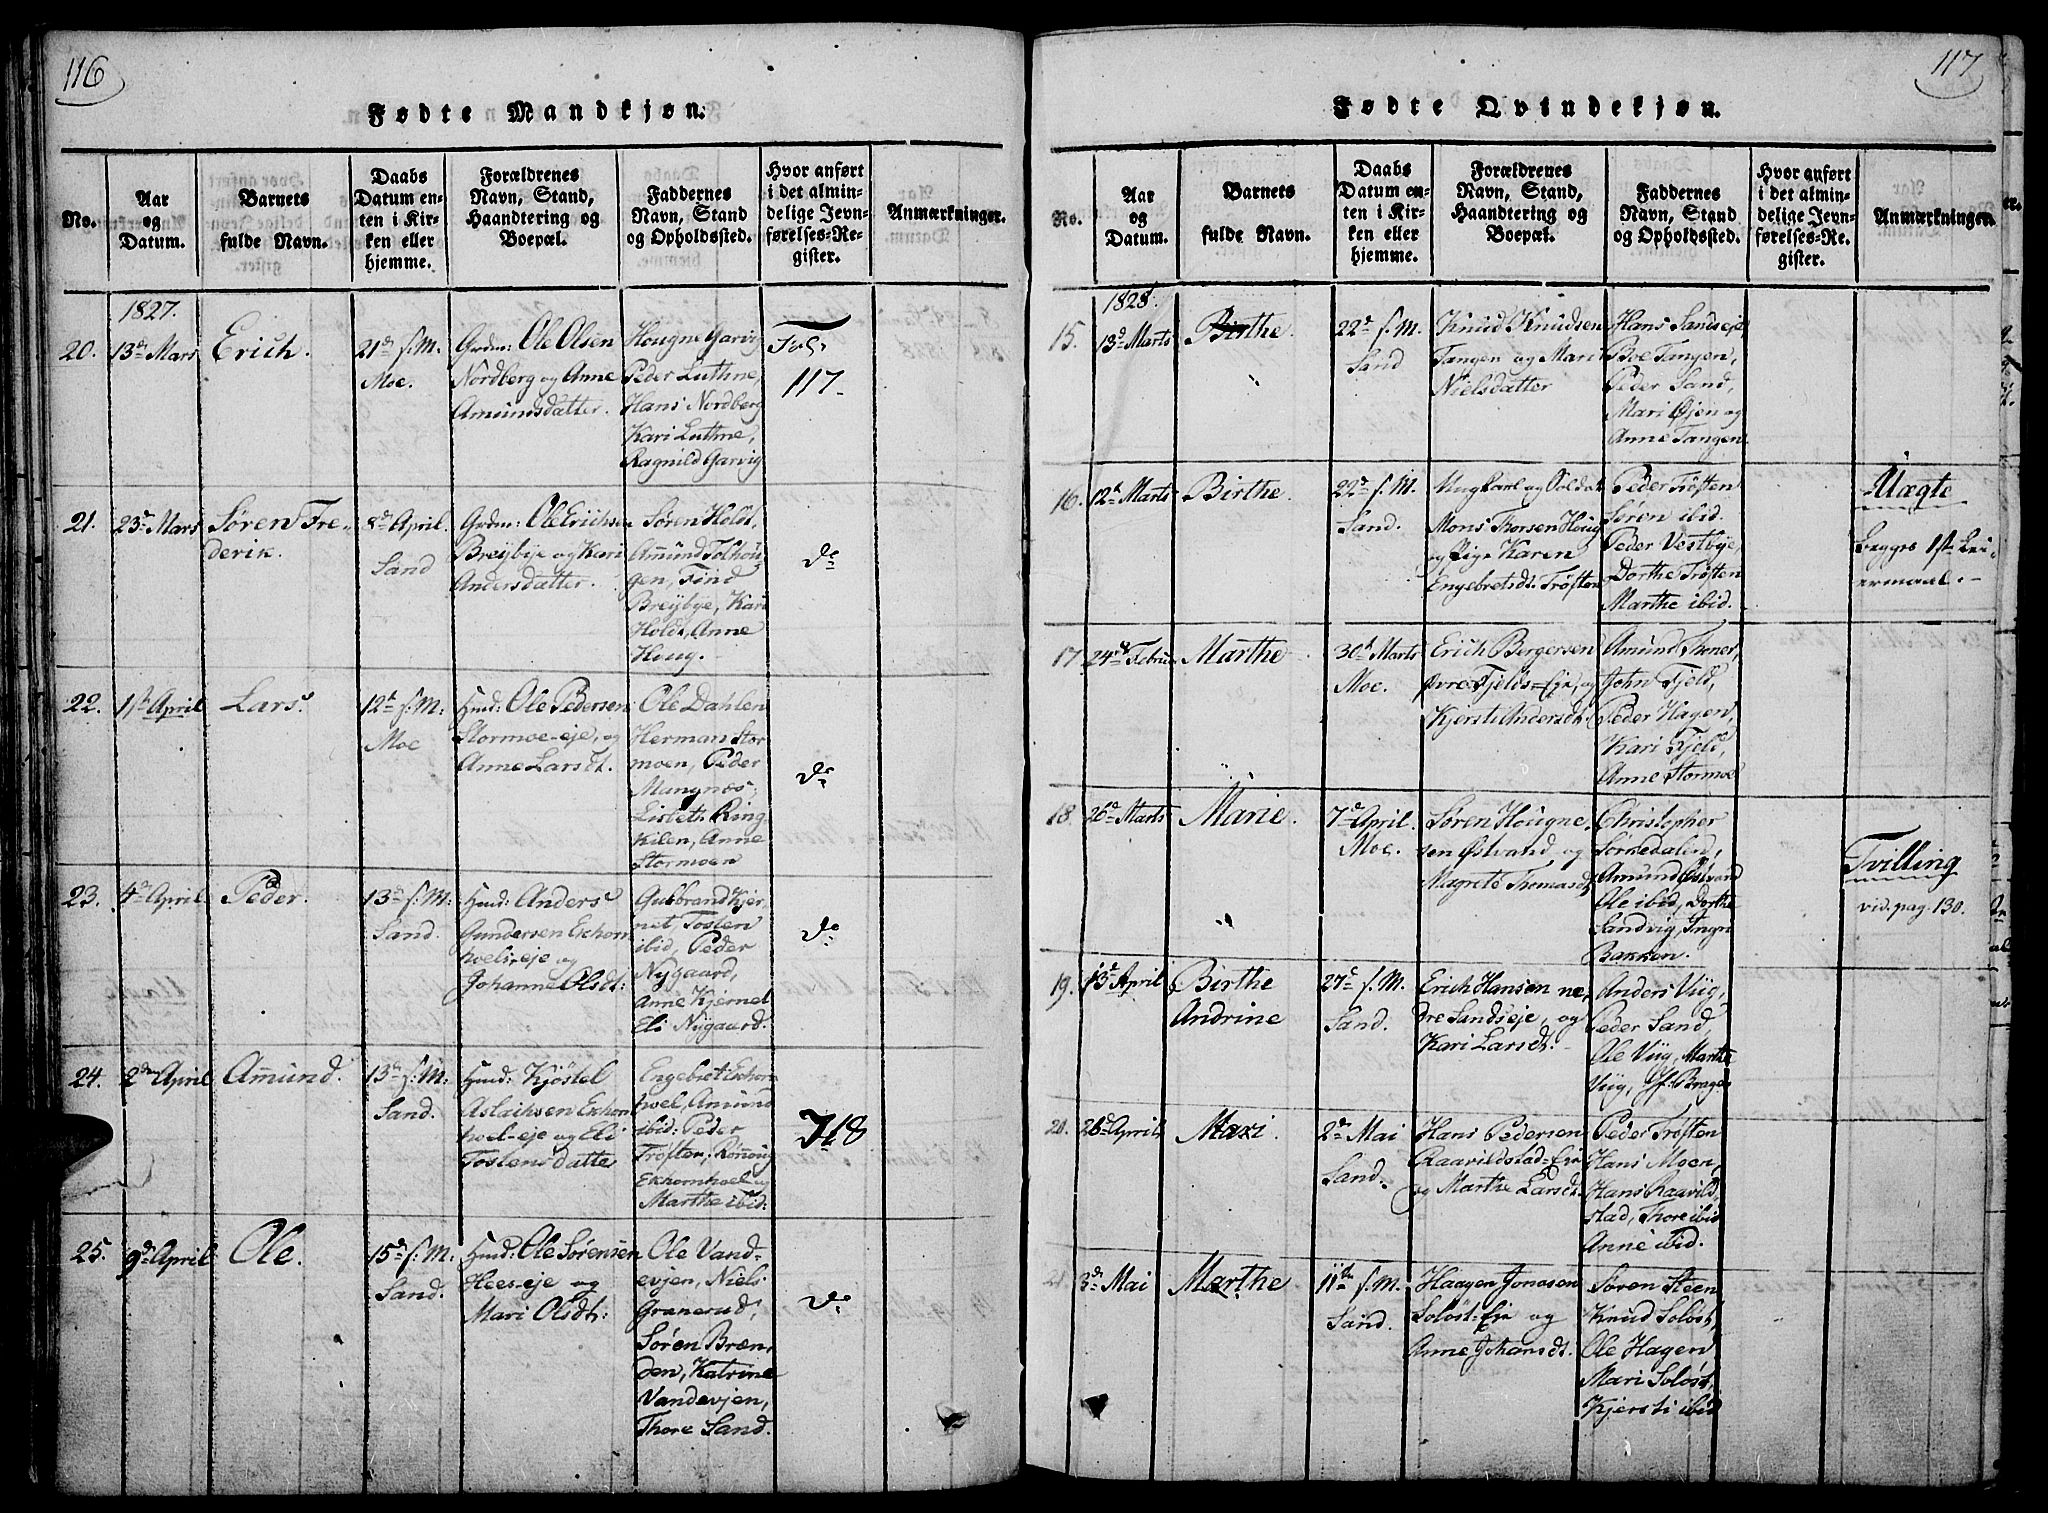 116
Fødte Mandkjøn.
No.
Aar
og
Datum.
Barnets
fulde Navn.
Daabs
Datum en-
ten i Kir-
ken eller
hjemme.
Forældrenes
Navn, Stand,
Haandtering og
Boepæl.
Faddernes
Navn, Stand
og Opholdssted.
Hvor anført
i det almin-
delige Jevn-
førelses-Re-
gister.
Anmærkninger.
1827.
20.
13de Mars
Erich.
21de s. M.
Moe.
Grdm: Ole Olsen
Nordberg og Anne
Amunsdatter.
Hougne Garvig
Peder Luthne,
Hans Nordberg
Kari Luthne,
Ragnild Garvig
Fol.
117.
21.
23de Mars
Søren Fre-
derik.
8de April.
Sand
Grdm: Ole Erichsen
Breÿbÿe og Kari
Andersdatter.
Søren Holdt,
Amund Tolhou-
gen, Find
Breÿbÿe, Kari
Holdt, Anne
Houg.
do
22.
1ste April
Lars.
12te s. M:
Moe
Huusm: Ole Pedersen
Stormoe-eje, og
Anne Larsdt.
Ole Dahlen
Herman Stor
moen, Peder
Mangnæs,
Lisbeth Ring-
kilen, Anne
Stormoen
do
23.
4de April
Peder.
13de s. M.
Sand.
Huusm: Anders
Gundersen Ekhorn
hoels-eje og
Johanne Olsdt:
Gulbrand Kjer-
net, Tosten
ibid, Peder
Nÿgaard,
Anne Kjernet
Eli Nÿgaard.
do
24.
2den April
Amund.
13de s. M:
Sand.
Huusm: Kjøstel
Aslachsen Ekhorn
hoel-eje og Eli
Tostensdatter
Engebret Ekhorn
hoel, Amund
ibid: Peder
Trøften, Rønnoug
Ekhornhoel og
Marthe ibid:
118
25.
9de April
Ole.
15de s: M:
Sand.
Huusm: Ole Sørensen
Hees-eje og
Mari Olsdt:
Ole Vand-
evjen, Niels
Granerud,
Søren Bræn-
den, Katrine
Vandevjen,
Thore Sand.
do
117
Fødte Qvindekjøn.
No.
Aar
og
Datum.
Barnets
fulde Navn.
Daabs
Datum en-
ten i Kir-
ken eller
hjemme.
Forældrenes
Navn, Stand,
Haandtering og
Boepæl.
Faddernes
Navn, Stand
og Opholdssted.
Hvor anført
i det almin-
delige Jevn-
førelses-Re-
gister.
Anmærkninger.
1828.
15.
13de Marts
Birthe.
22de s. M.
Sand
Knud Knudsen
Tangen og Mari
Nielsdatter
Hans Sandseje
Boe Tangen,
Peder Sand,
Mari Øjen og
Anne Tangen
16.
12te Marts
Birthe.
22de s. M.
Sand.
Ungkarl og Soldat
Mons Thorsen Houg
og Pige Karen
Engebretsdt. Trøften
Peder Trøften
Søren ibid.
Peder Vestbÿe,
Dorthe Trøften
Marthe ibid.
Uægte
begges 1ste Lei-
ermaal.
17
24de Febru
Marthe
30te Marts
Moe.
Erich Bergersen
øvre Fjelds-Eje, og
Kjersti Andersdt.
Amund Thoner,
John Fjeld,
Peder Hagen,
Kari Fjeld,
Anne Stormoe
18.
26de Marts
Marie.
7de April.
Moe.
Søren Hougne-
sen Østvand og
Magrete Thomasdt
Christopher
Sørkedalen,
Amund Østvand
Ole ibid, Dorthe
Sandvig, Ingn
Bakken.
Tvilling
vid. pag. 130.
19.
13de April
Birthe
Andrine
27de s. M.
Sand.
Erich Hansen ne-
dre Sandseje, og
Kari Larsdt.
Anders Viig,
Peder Sand,
Ole Viig, Marthe
Viig, Jf. Bragen
20.
26de April
Mari.
2den Mai
Sand.
Hans Pedersen
Raavildstad-Eje
og Marthe Larsdt.
Peder Trøften
Hans Moen,
Hans Raavild
stad, Thore ibid
Anne ibid.
21
3de Mai
Marthe
11te s. M.
Sand.
Haagen Jonasen
Soløst-Eje og
Anne Johansdt.
Søren Steen
Knud Soløst,
Ole Hagen
Mari Soløst,
Kjersti ibid